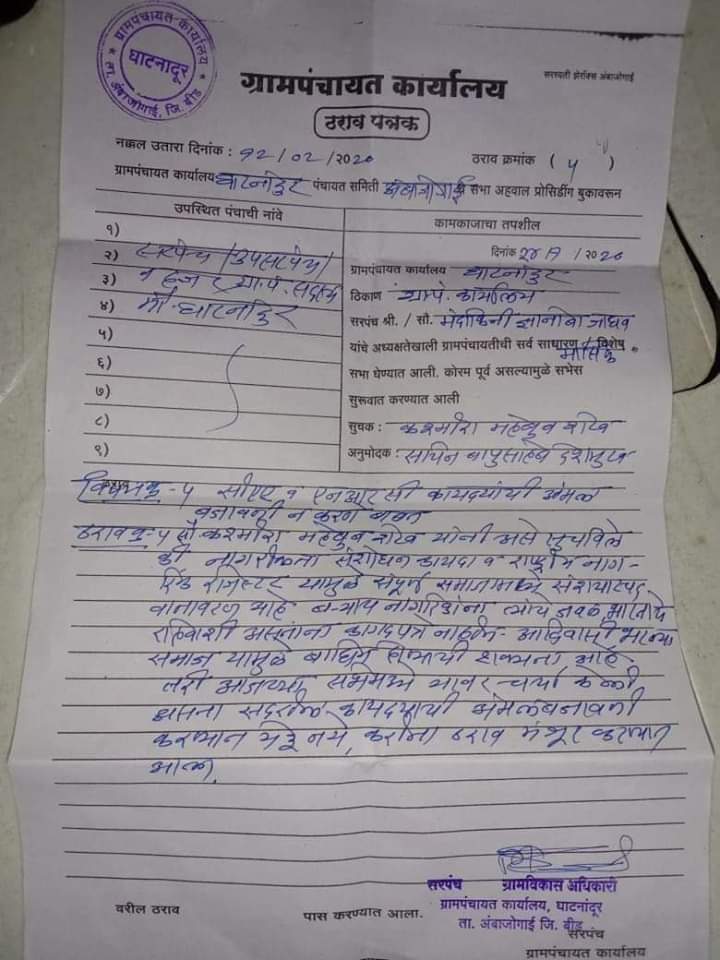 ग्रामपंचायत-कार्यालय
घाटनादूर
ता. अंबाजोगाई, जि. बीड
सरस्वती झेरॉक्स अंबाजोगाई
ग्रामपंचायत कार्यालय
ठराव पत्रक
नक्कल उतारा दिनांक : १२/०२/२०२०
ठराव क्रमांक ( ५ )
ग्रामपंचायत कार्यालय घाटनांदुर पंचायत समिती अंबाजोगाई सभा अहवाल प्रोसिडींग बुकावरून
उपस्थित पंचाची नांवे
कामकाजाचा तपशील
१)
२) सरपंच/उपसरपंच/
३) व हजर ग्रा.पं. सदस्य
४) मौ. घाटनांदुर
५)
६)
७)
८)
९)
दिनांक /२०२०
ग्रामपंचायत कार्यालय घाटनांदुर
ठिकाण ग्रा.पं. कार्यालय
सरपंच श्री. / सौ. मंदाकिनी ज्ञानोबा जाधव
यांचे अध्यक्षतेखाली ग्रामपंचायतीची सर्व साधारण / विशेष
मासिक
सभा घेण्यात आली. कोरम पूर्व असल्यामुळे सभेस
सुरूवात करण्यात आली
सुचक : कश्मीरा महेबुब शेख
अनुमोदक : सचिन बापुसाहेब देशमुख
विषय क्र - ५ सीएए व एनआरसी कायद्याची अंमल
बजावणी न करणे बाबत
ठराव क्र - ५ सौ. कश्मीरा महेबुब शेख यांनी असे सुचविले
की नागरीकता संशोधन कायदा व राष्ट्रीय नाग-
रिक रजिस्टर यामुळे संपूर्ण समाजामध्ये संशयास्पद
वातावरण आहे बऱ्याच नागरिकांना जवळ भारताचे
रहिवाशी असतांना कागदपत्रे नाहीत - आदिवासी
समाज यामुळे बाधित होण्याची शक्यता आहे.
तरी आजच्या सभेमध्ये यावर चर्चा केली
असता सदरील कायद्याची अंमलबजावणी
करण्यात येवू नये, करीता ठराव मंजूर करण्यात
आला.
सरपंच ग्रामविकास अधिकारी
ग्रामपंचायत कार्यालय, घाटनांदूर
ता. अंबाजोगाई जि. बीड
वरील ठराव पास करण्यात आला.
सरपंच
ग्रामपंचायत कार्यालय